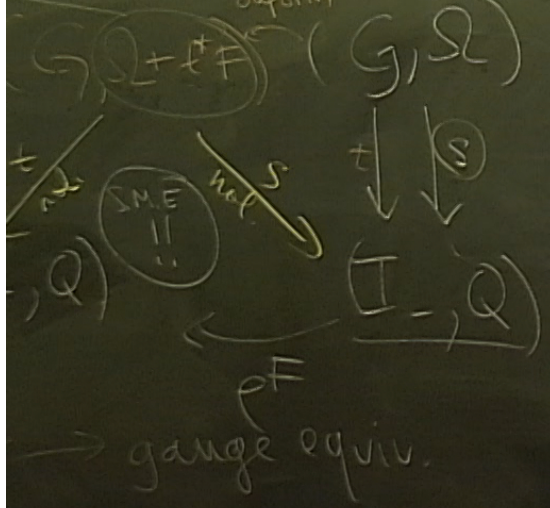 (G, Ω + t*F) (G, Ω)
t s t s
hol.
S.M.E
!!
, Q) (I_-, Q)
e^F
→ gauge equiv.